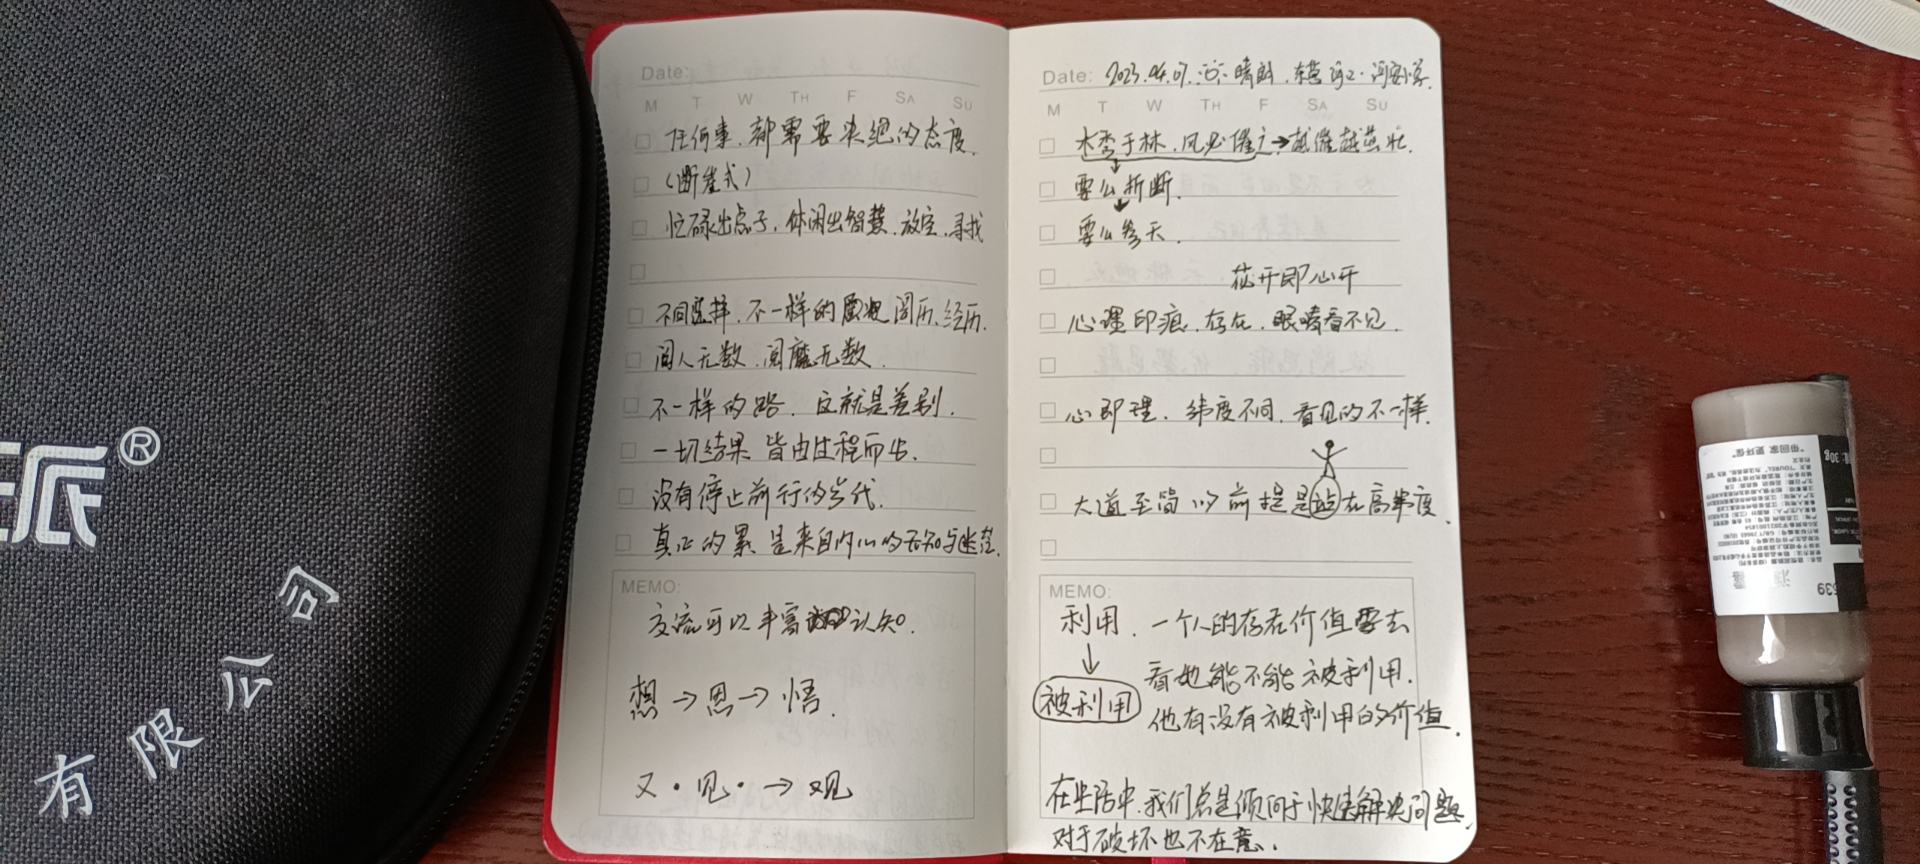 派®
有限公司
Date:
M T W TH F SA SU
任何事、都需要决绝的态度.
(断崖式)
忙碌出点子、休闲出智慧、放空、寻找
不同选择、不一样的 阅历、经历.
阅人无数、阅魔无数.
不一样的路、这就是差别.
一切结果 皆由过程而出.
没有停止前行的步伐.
真正的累 是来自内心的无知与迷茫.
MEMO:
交流可以丰富 认知.
想→思→悟.
又·见·→观
Date: 2023.04.07. 晴朗.
M T W TH F SA SU
木秀于林、风必催之→越催越茁壮.
要么折断.
要么参天.
花开即心开
心理印痕、存在、眼睛看不见.
心即理、纬度不同、看见的不一样.
大道至简的前提是站在高维度.
MEMO:
利用、一个人的存在价值要去
看他能不能被利用.
被利用
他有没有被利用的价值.
在生活中、我们总是倾向于快速解决问题.
对于破坏也不在意.
30g
639